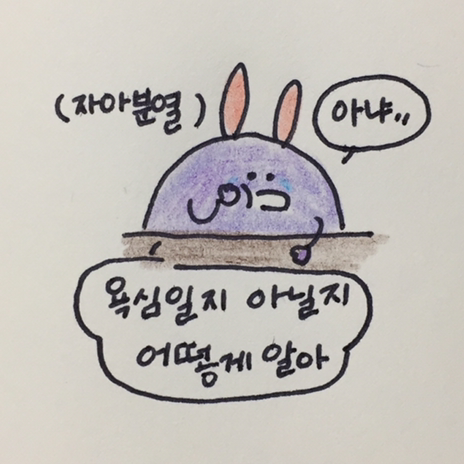 (자아분열)
아냐,,
욕심일지 아닐지
어떻게 알아